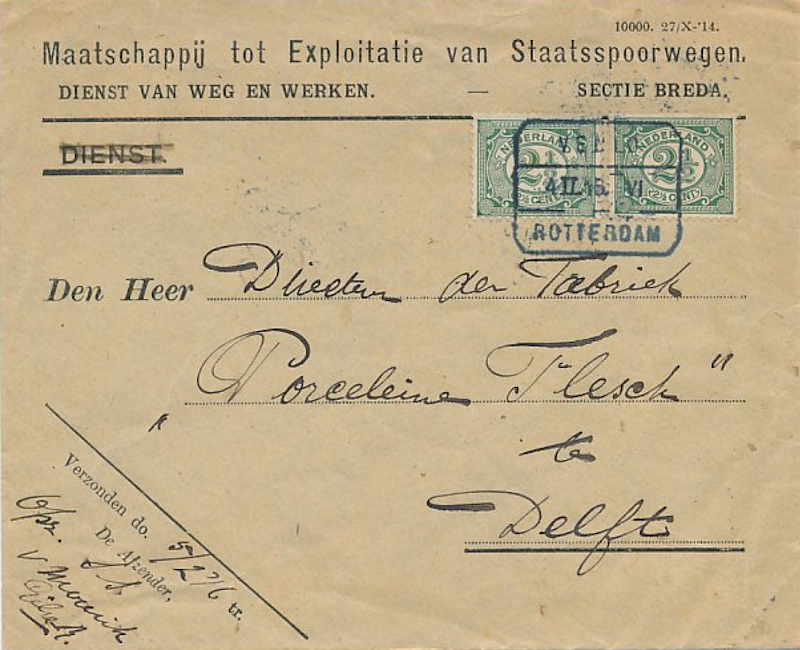 10000. 27/X-'14.
Maatschappij tot Exploitatie van Staatsspoorwegen.
DIENST VAN WEG EN WERKEN. — SECTIE BREDA.
DIENST.
NEDERLAND NEDERLAND
2½ 2½
2½ CENT 2½ CENT
VENLO
4 II. 16. VI
ROTTERDAM
Den Heer Directeur der Fabriek
„Porceleine Flesch"
te
Delft
Verzonden do. 5/2 '16
De Afzender,
tr.